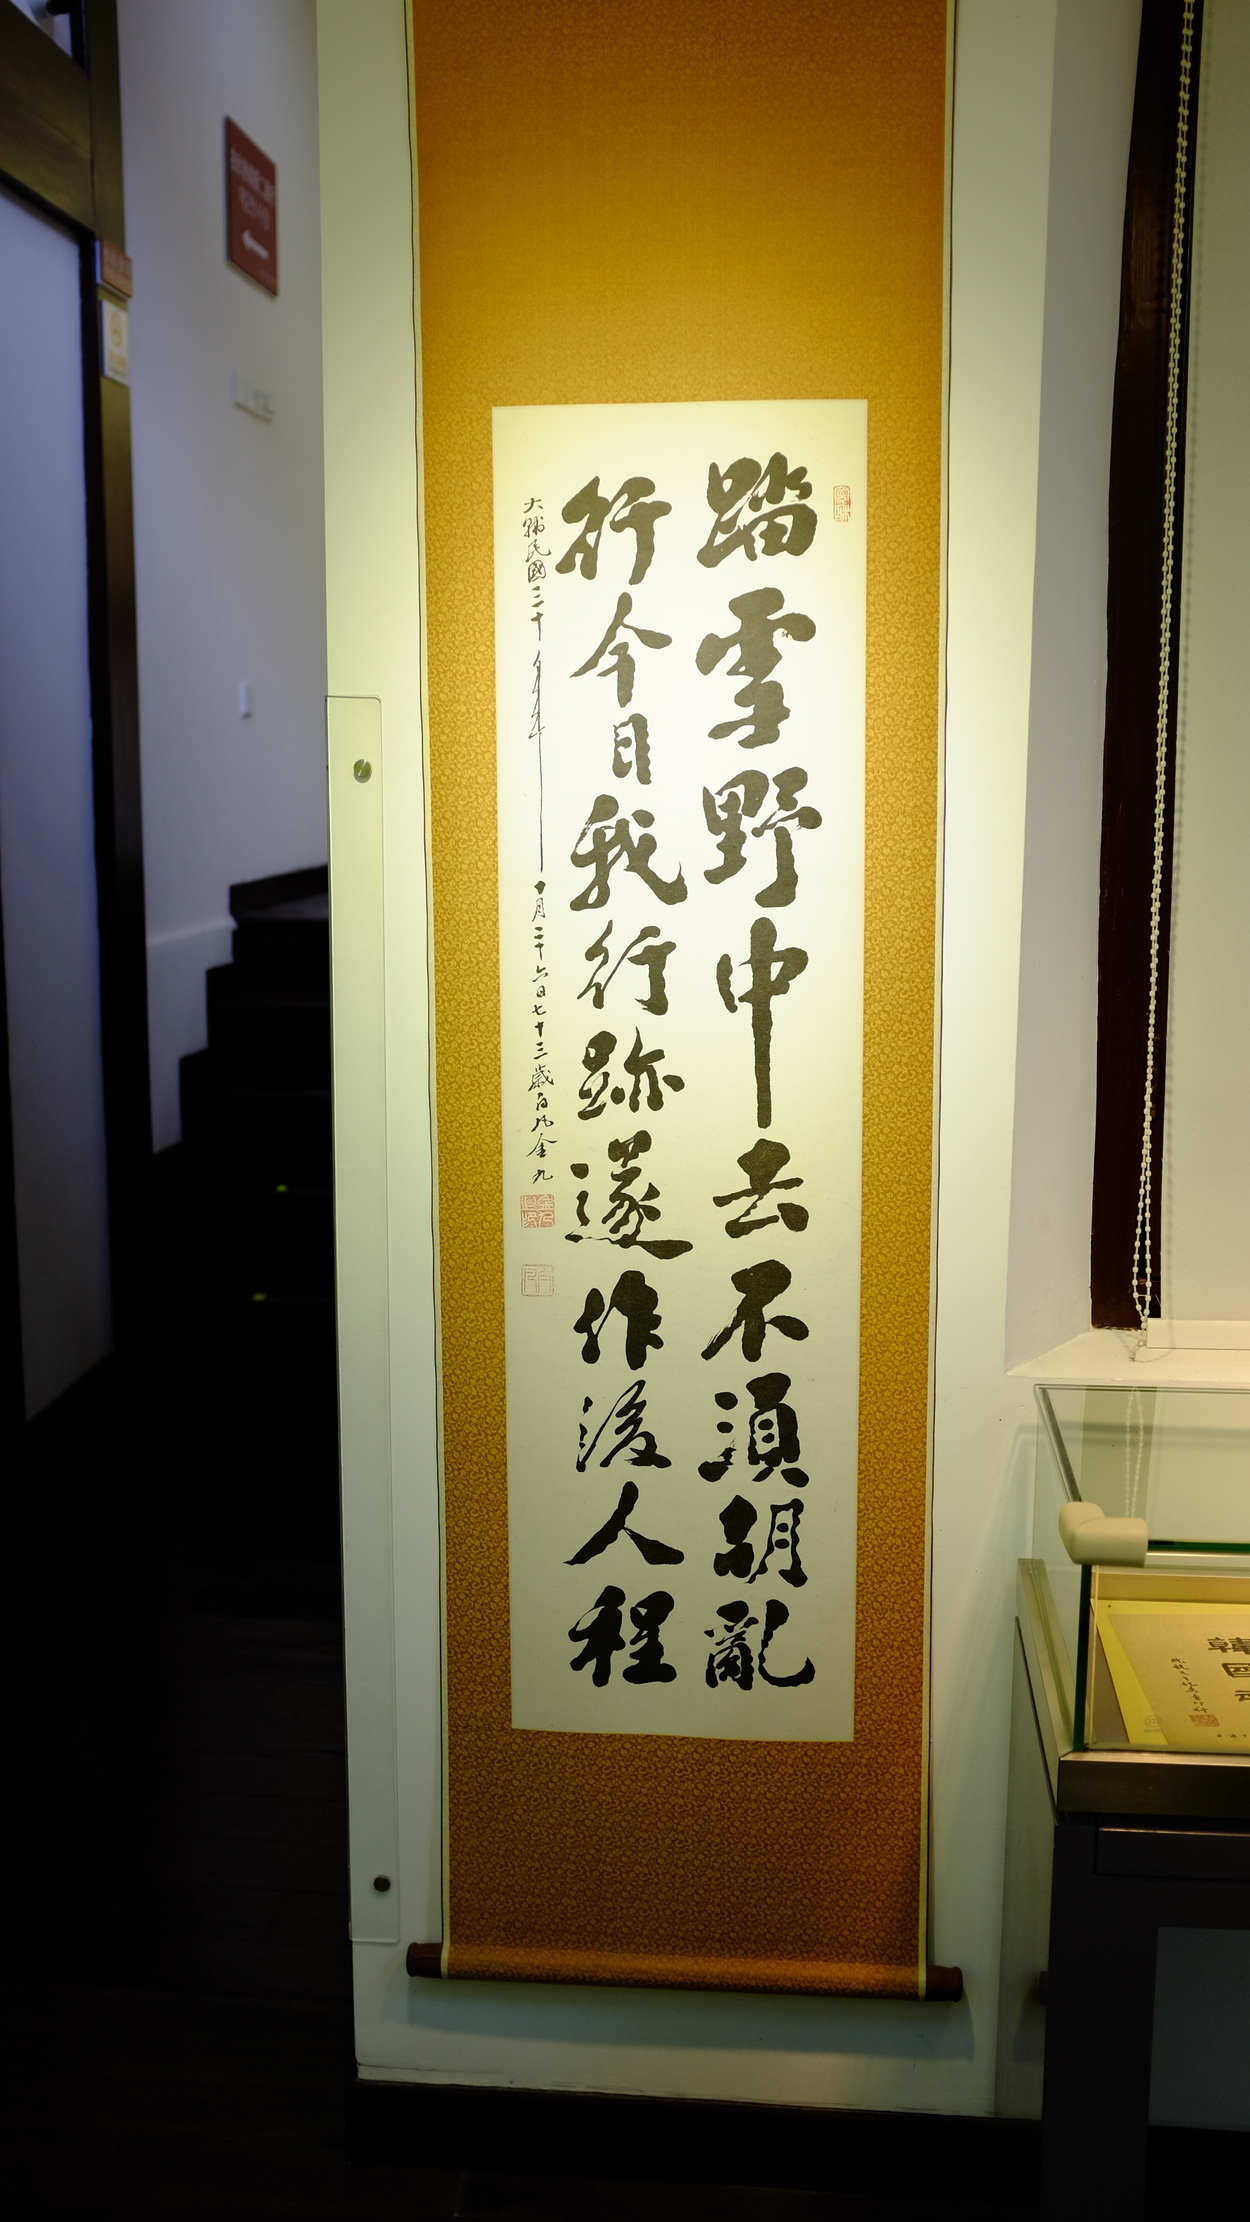 踏雪野中去不須胡亂
行今日我行跡遂作後人程
大韓民國三十年十月二十六日七十三歲白凡金九
韓
國